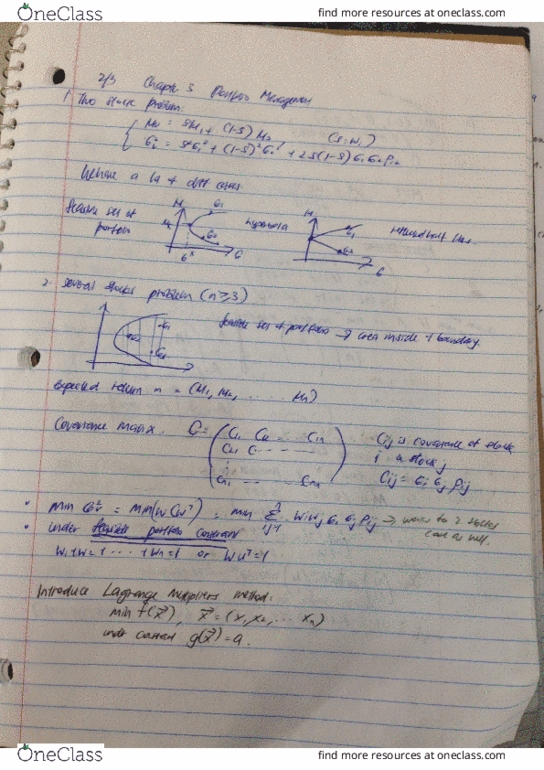 OneClass
find more resources at oneclass.com
2/3 Chapter 3 Portfolio Management
1. Two stock problem:
μv = sμ1 + (1-s)μ2 (s=w1)
σv² = s²σ1² + (1-s)²σ2² + 2s(1-s)σ1σ2ρ12
diff cases
feasible set of hyperbola
portfolio
2. several stocks problem (n≥3)
feasible set of portfolio → area inside + boundary.
expected return m = (μ1, μ2, ..... μn)
Covariance Matrix. C= C11 C12 ... C1n Cij is covariance of stock
C21 C i & stock j
Cn1 ... Cnn Cij = σi σj ρij
• min σv² = min(w C wᵀ) = min Σ wi wj σi σj ρij → works to 2 stocks
case as well.
• under feasible portfolio constraint
w1+w2+...+wn=1 or w uᵀ=1
Introduce Lagrange Multipliers method:
min f(x), x = (x1, x2, ... xn)
under constraint g(x)=a.
OneClass
find more resources at oneclass.com